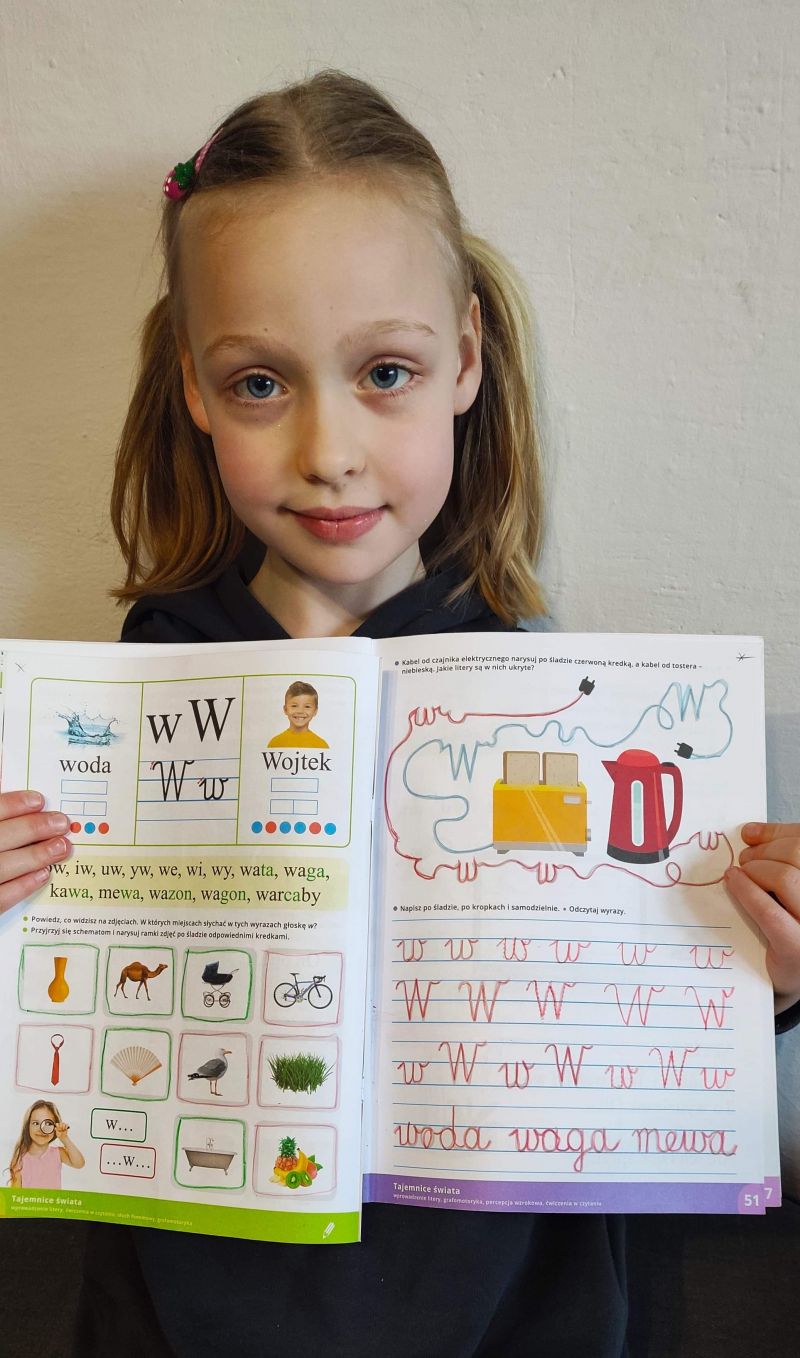 w W
W w
woda
Wojtek
ow, iw, uw, yw, we, wi, wy, wata, waga,
kawa, mewa, wazon, wagon, warcaby
Powiedz, co widzisz na zdjęciach. W których miejscach słychać w tych wyrazach głoskę w?
Przyjrzyj się schematom i narysuj ramki zdjęć po śladzie odpowiednimi kredkami.
w...
...w...
Tajemnice świata
wprowadzenie litery, ćwiczenia w czytaniu, słuch fonemowy, grafomotoryka
Kabel od czajnika elektrycznego narysuj po śladzie czerwoną kredką, a kabel od tostera –
niebieską. Jakie litery są w nich ukryte?
w W
W
w w w
Napisz po śladzie, po kropkach i samodzielnie. • Odczytaj wyrazy.
w w w w w w
W W W W W
w W w W w W w
woda waga mewa
Tajemnice świata
wprowadzenie litery, grafomotoryka, percepcja wzrokowa, ćwiczenia w czytaniu
51
7